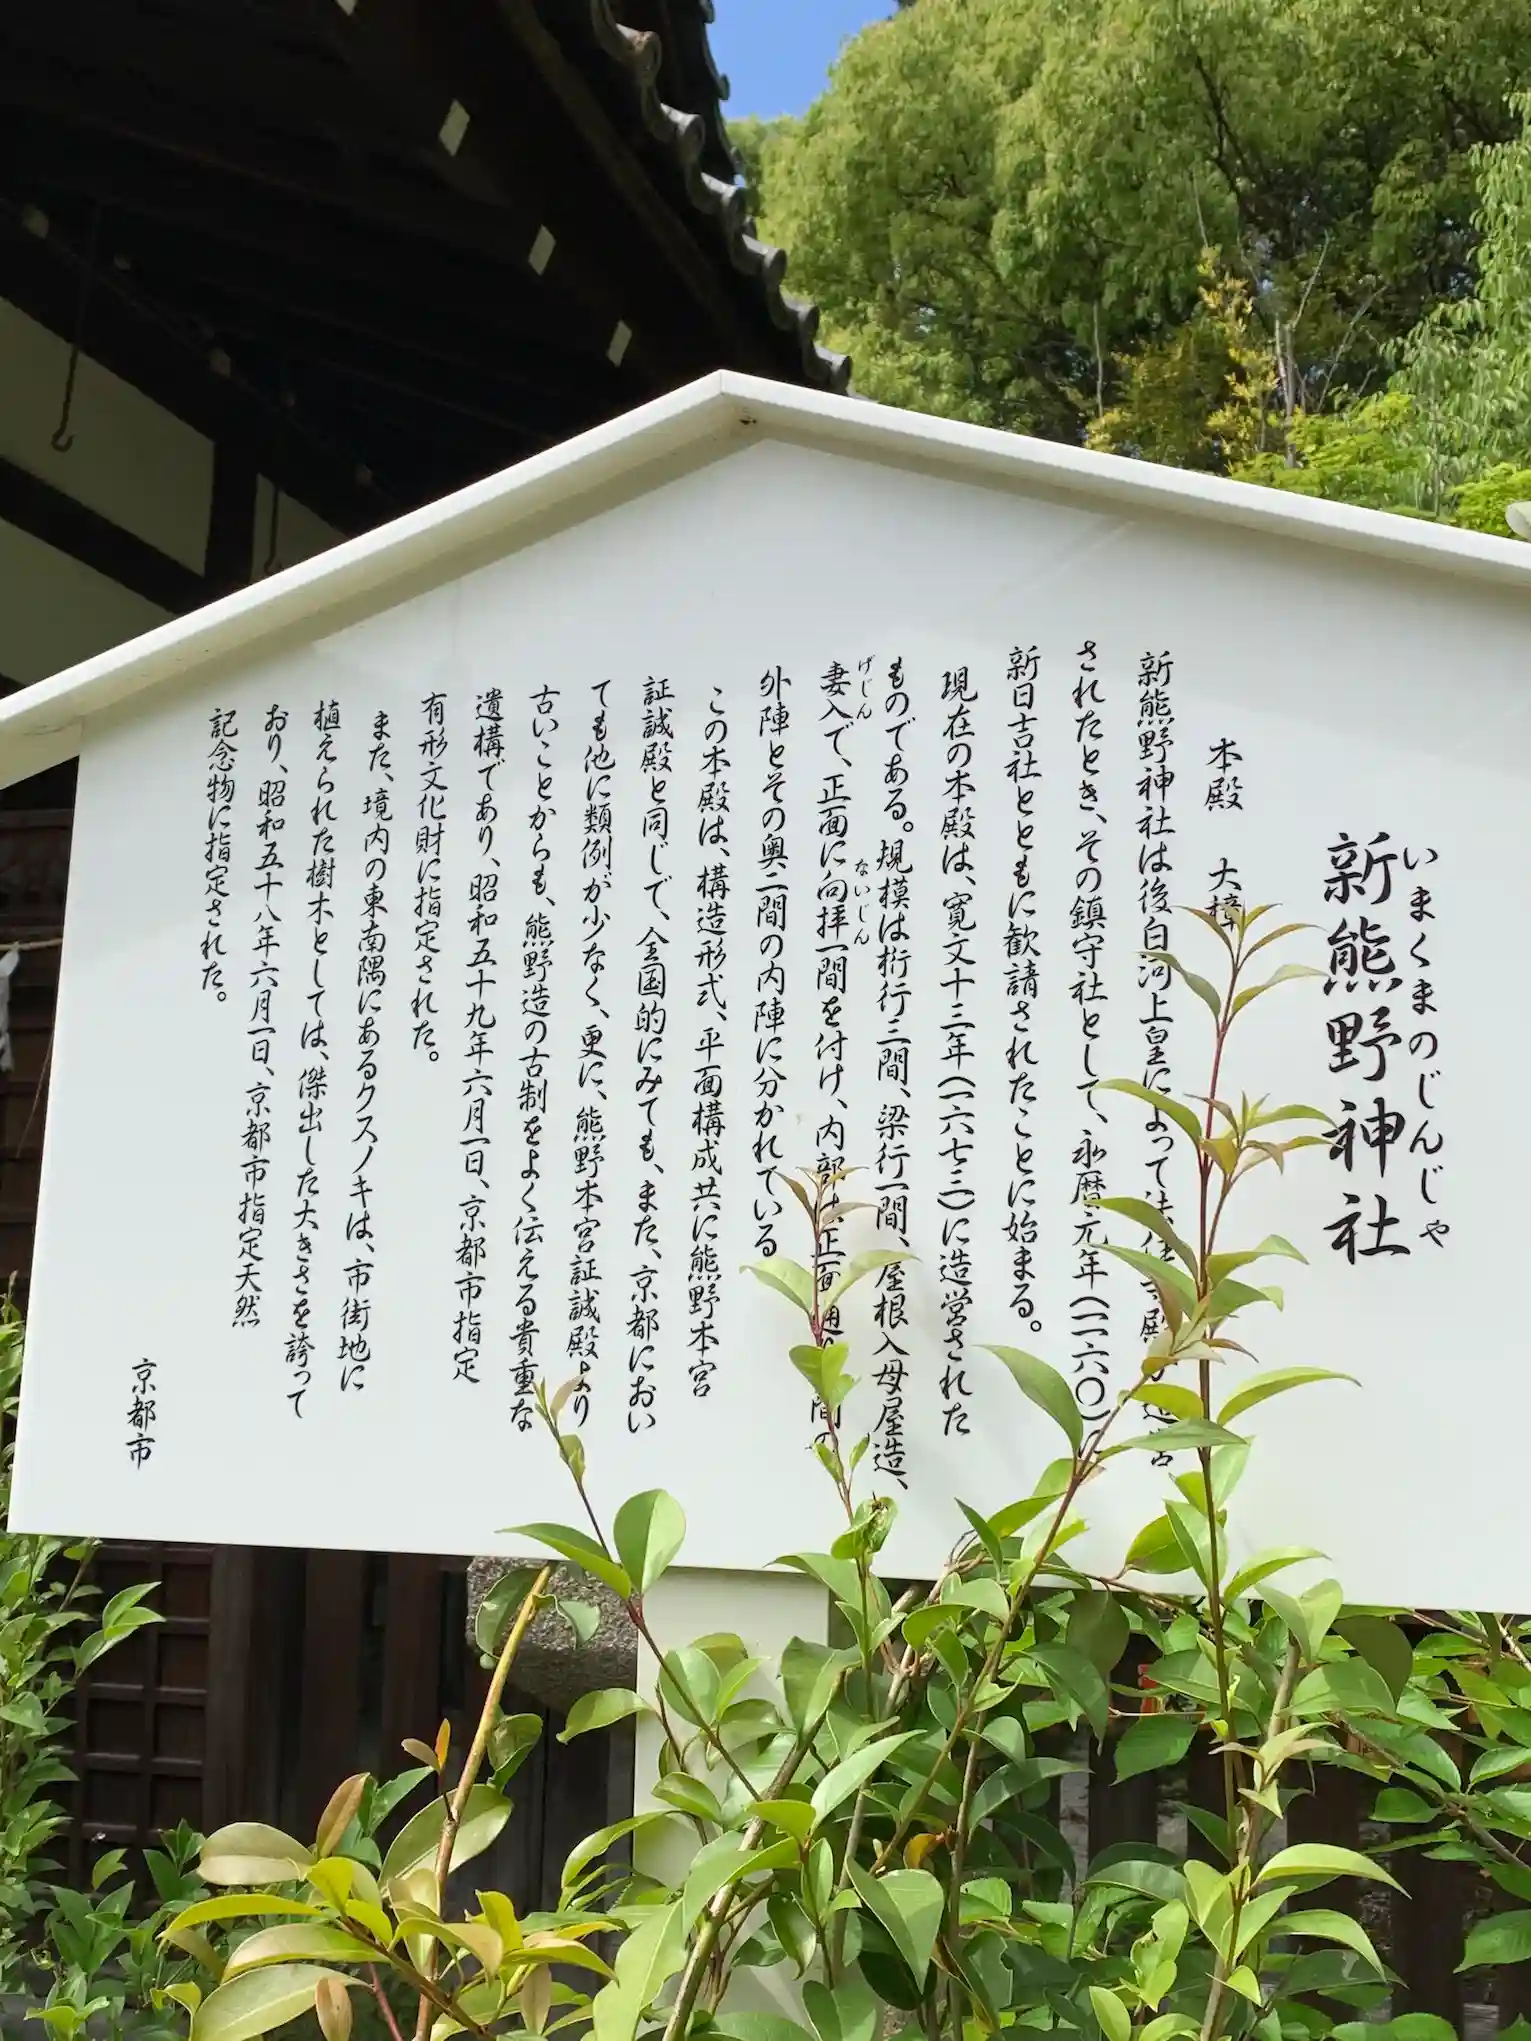 いまくまのじんじゃ
新熊野神社
本殿 大樟
新熊野神社は後白河上皇によって法住寺殿が造営
されたとき、その鎮守社として、永暦元年(一一六〇)に
新日吉社とともに歓請されたことに始まる。
現在の本殿は、寛文十三年(一六七三)に造営された
ものである。規模は桁行三間、梁行一間、屋根入母屋造、
げじん ないじん
妻入で、正面に向拝一間を付け、内部は正面通り 間の
外陣とその奥二間の内陣に分かれている
この本殿は、構造形式、平面構成共に熊野本宮
証誠殿と同じで、全国的にみても、また、京都におい
ても他に類例が少なく、更に、熊野本宮証誠殿より
古いことからも、熊野造の古制をよく伝える貴重な
遺構であり、昭和五十九年六月一日、京都市指定
有形文化財に指定された。
また、境内の東南隅にあるクスノキは、市街地に
植えられた樹木としては、傑出した大きさを誇って
おり、昭和五十八年六月一日、京都市指定天然
記念物に指定された。
京都市